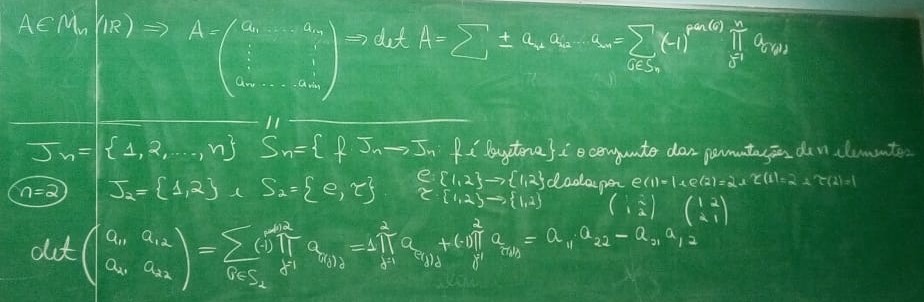 A∈Mₙ(ℝ) ⇒ A = (a₁₁ .... a₁ₙ ⋮ ⋮ aₙ₁ .... aₙₙ) ⇒ det A = ∑ ± a₁,₁ a₂,₂ ... aₙ,ₙ = ∑_{σ∈Sₙ} (-1)^{par(σ)} ∏_{j=1}^{n} a_{σ(j)j}
Jₙ = {1,2,...,n} Sₙ = { f: Jₙ → Jₙ: f é bijetora} é o conjunto das permutações de n elementos
n=2 J₂ = {1,2} e S₂ = {e, τ}. e: {1,2}→{1,2} dada por e(1)=1 e e(2)=2 e τ(1)=2 e τ(2)=1
τ: {1,2}→{1,2} (1 2 1 2) (1 2 2 1)
det (a₁₁ a₁₂ a₂₁ a₂₂) = ∑_{σ∈S₂} (-1)^{par(σ)} ∏_{j=1}^{2} a_{σ(j)j} = 1∏_{j=1}^{2} a_{e(j)j} + (-1)∏_{j=1}^{2} a_{τ(j)j} = a₁₁.a₂₂ - a₂₁a₁₂